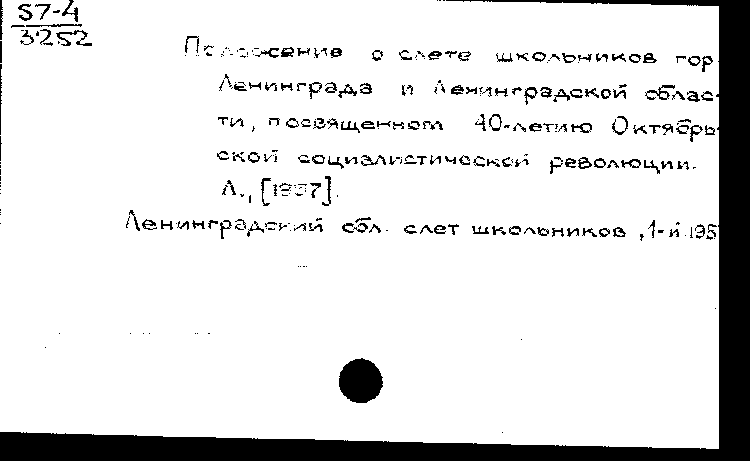 57-4
3252
Положение о слете школьников гор.
Ленинграда и Ленинградской облас-
ти, посвященном 40-летию Октябрь-
ской социалистической революции.
Л., [1957].
Ленинградский обл. слет школьников, 1-й 195